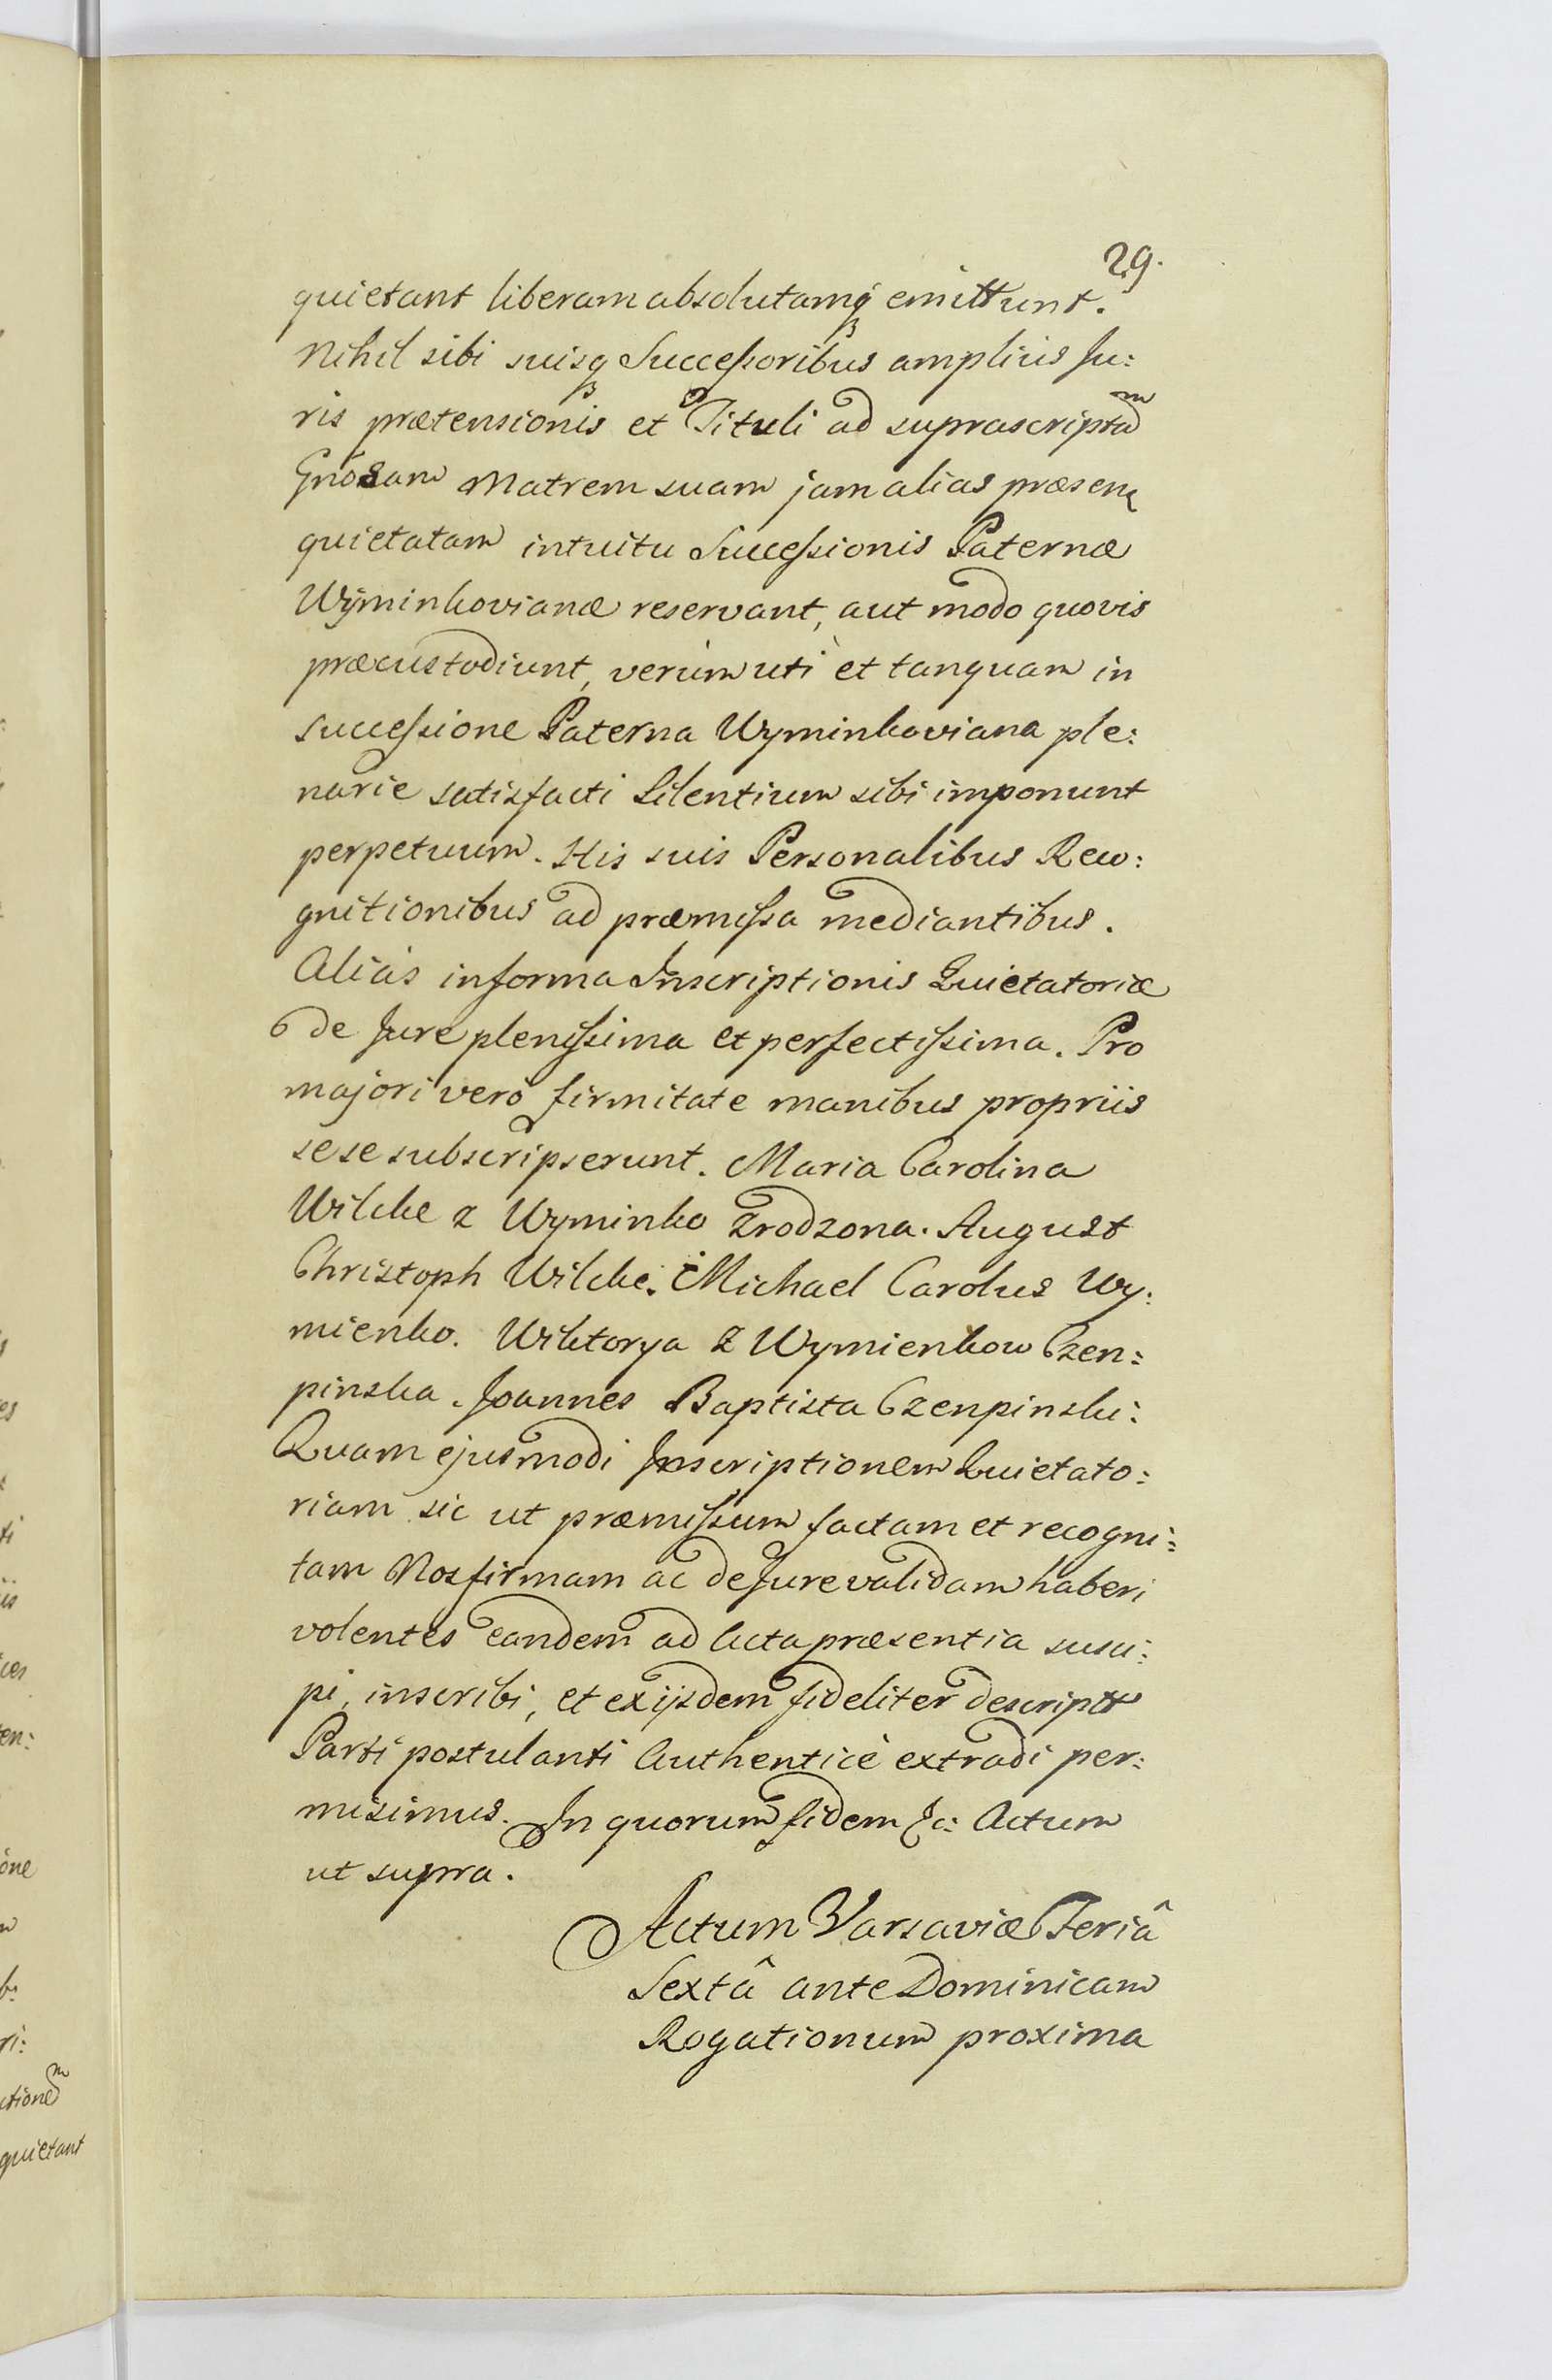 29.
quietant liberam absolutamq́ꝫ emittunt.
Nihil sibi suisqꝫ Successoribus amplius Ju:
ris prætensionis et Tituli ad suprascriptaᵐ
Gnosam Matrem suam jam alias præsen
quietatam intuitu Successionis Paternæ
Wyminkovianæ reservant, aut modo quovis
præcustodiunt, verùm uti et tanquam in
successione Paterna Wyminkoviana ple:
narie satisfacti Silentium sibi imponunt
perpetuum. His suis Personalibus Reco:
gnitionibus ad præmissa mediantibus.
Aliàs in forma Inscriptionis Quietatoriæ
de Jure plenissima et perfectissima. Pro
majori verò firmitate manibus propriis
sese subscripserunt. Maria Carolina
Wilcke z Wyminko Zrodzona. August
Christoph Wilcke. Michael Carolus Wy:
mienko. Wiktorya Z Wymienkow Czen:
pinska. Joannes Baptista Czenpinski:
Quam ejusmodi Inscriptionem Quietato:
riam sic ut præmissum factam et recogni:
tam Nos firmam ac de Jure validam haberi
volentes eandem ad Acta præsentia susci:
pi, inscribi, et ex ijsdem fideliter descriptt
Parti postulanti Authenticè extradi per:
misimus. In quorum fidem &c: Actum
ut supra.
Actum Varsaviæ Feriâ
Sextâ ante Dominicam
Rogationum proxima
ti
iis
ces
ten:
one
b:
ri:
ctioneᵐ
quietant